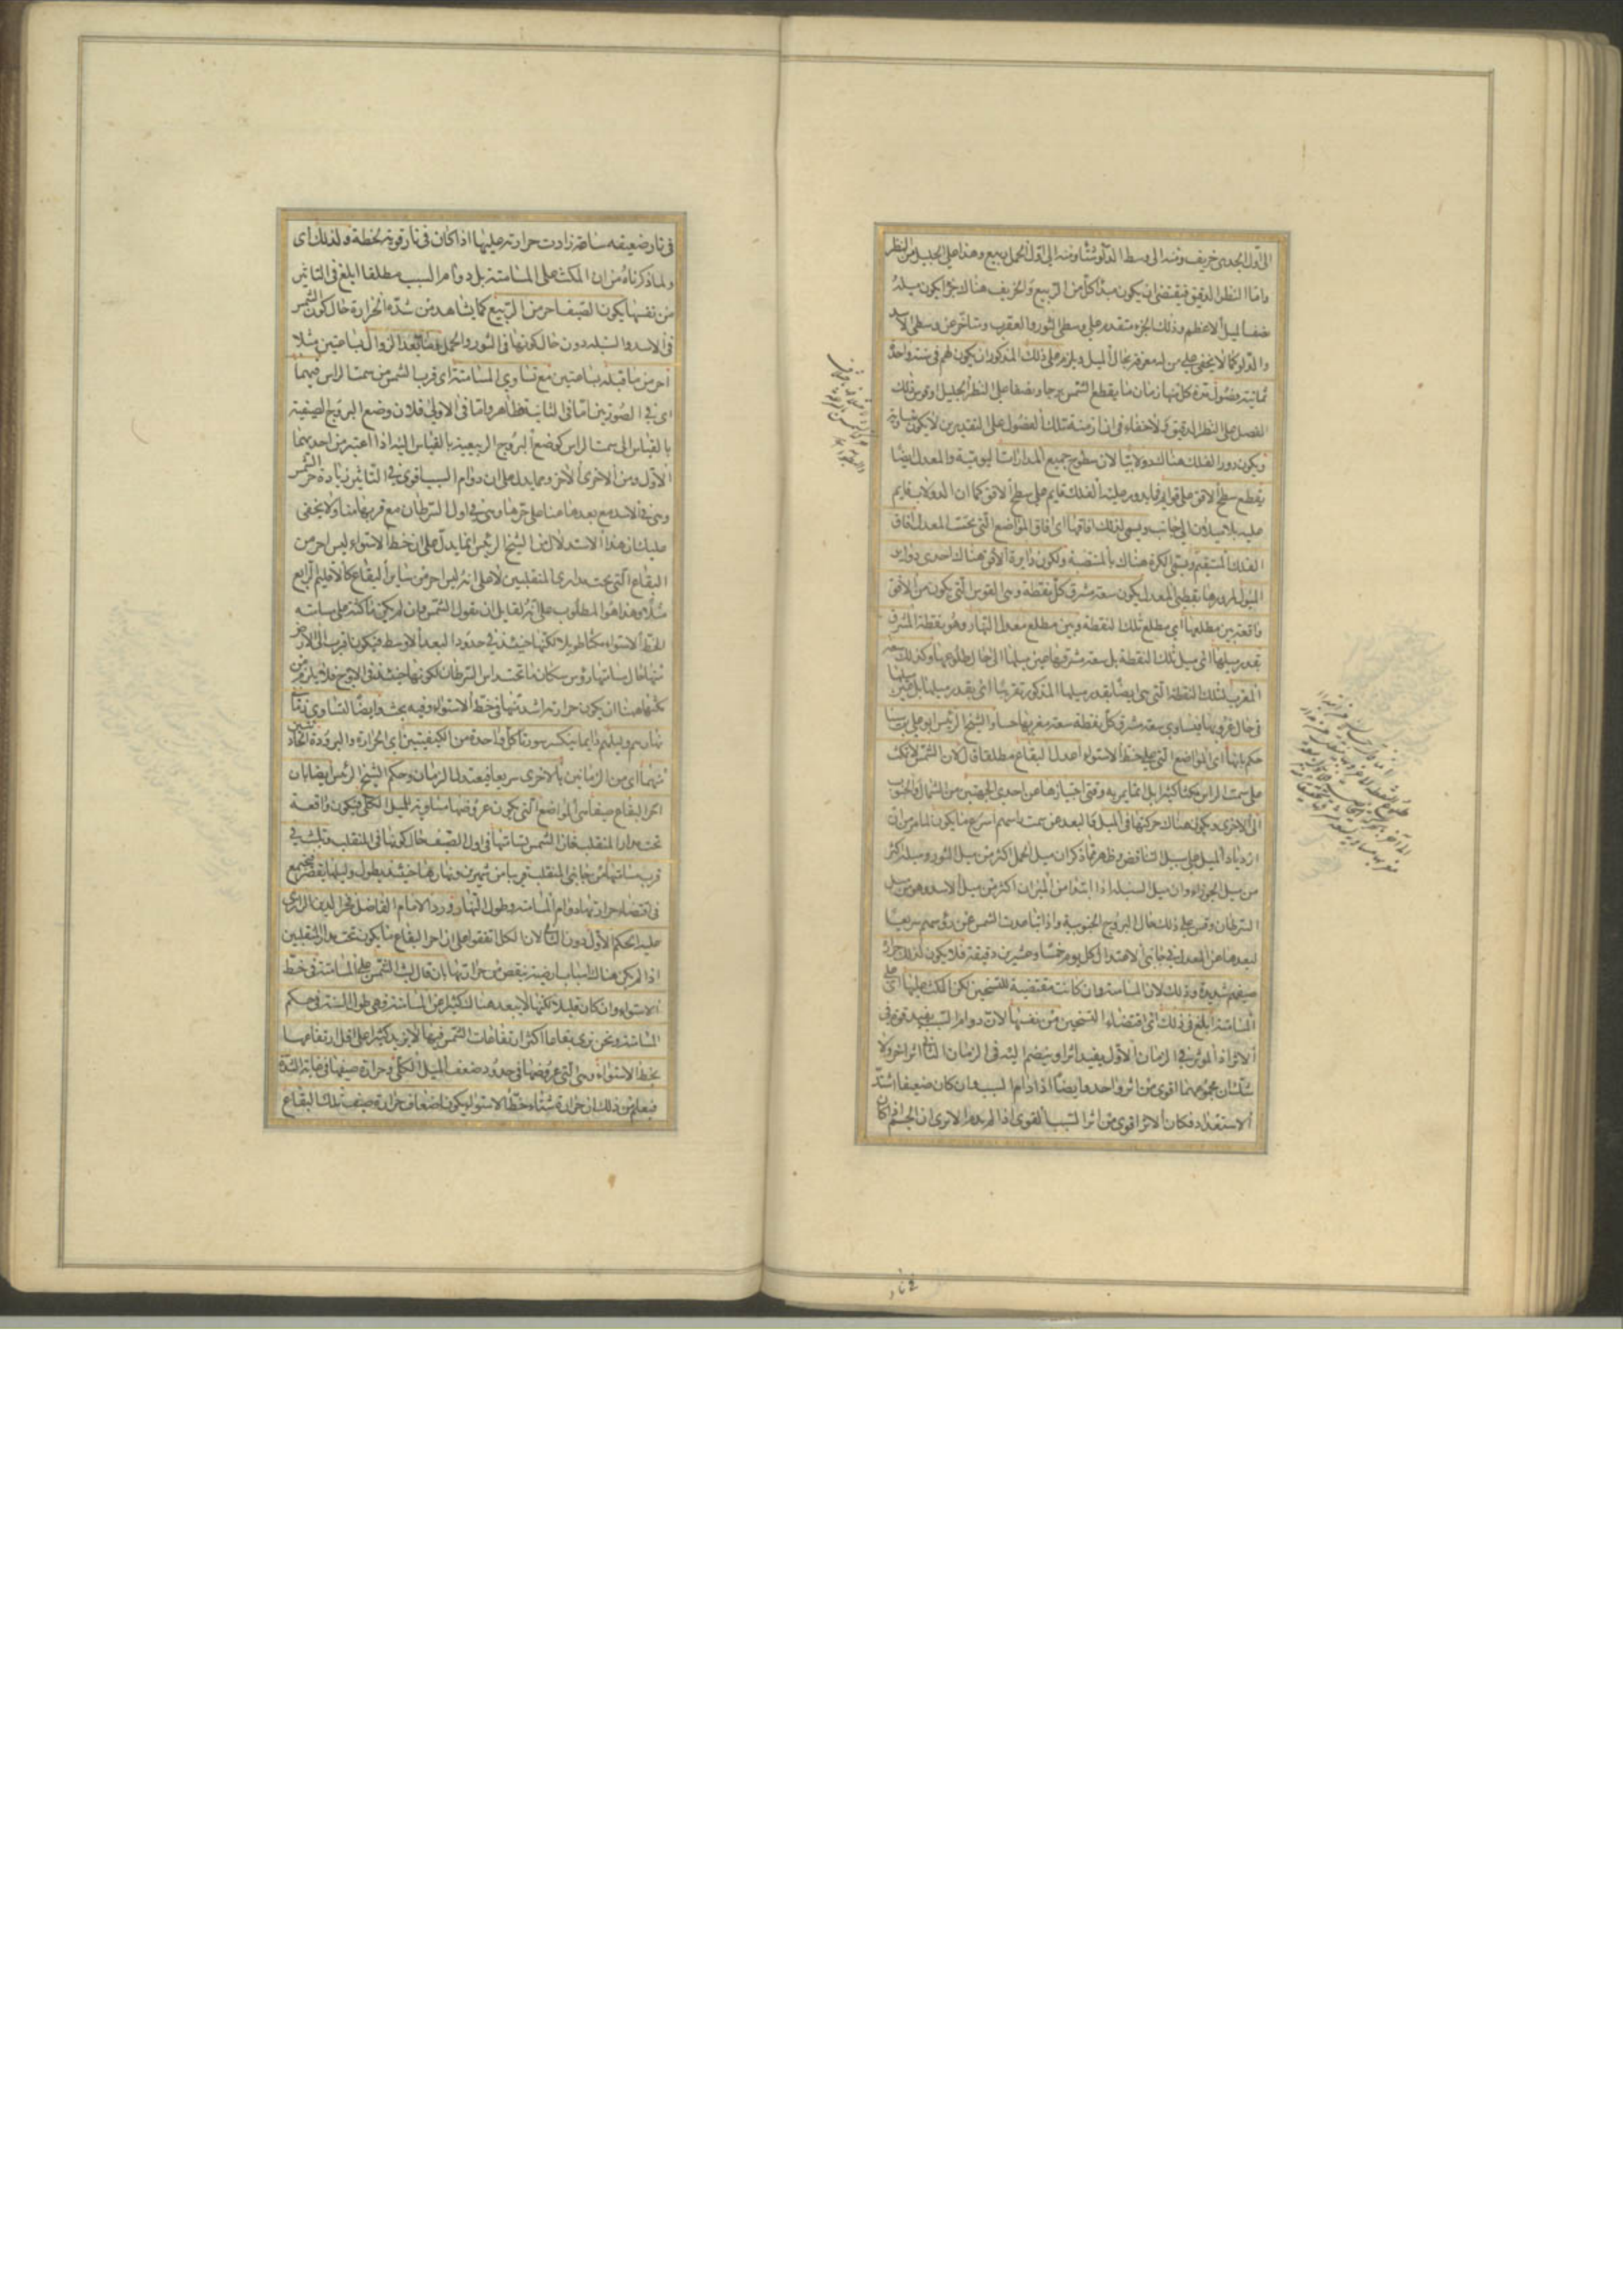 الى اول الجدى خريف ومنه الى وسط الدلو شتاء ومنه الى اول الحمل ربيع وهذا على الجليل من النظر
واما النظر الدقيق فيقتضى ان يكون مبدأ كل من الربيع والخريف هناك جزء يكون ميله
نصف الميل الاعظم وذلك الجزء متقدم على وسطى الثور والعقرب ومتاخر عن وسطى الاسد
والدلو كما لا يخفى على من له معرفة بحال الميل ويلزم على ذلك المذكور ان يكون لهم فى سنة واحدة
ثمانية فصول مدة كل منها زمان ما يقطع الشمس برجا ونصفا على النظر الجليل
الفصل على النظر الدقيق لا خفاء فى ان ازمنة تلك الفصول على التقديرين لا يكون متساوية
ويكون دور الفلك هناك دولابيا لان سطوح جميع المدارات اليومية والمعدل ايضا
يقطع سطح الافق على قوائم فما يدور عليه الفلك قايم على سطح الافق كما ان الدولاب قايم
عليه بلا ميلان الى جانب ويسمى لذلك افاقها اى افاق المواضع التى تحت المعدل افاق
الفلك المستقيم ويسمى الكرة هناك بالمنتصبة ولكون دايرة الافق هناك احدى دواير
الميول لمرورها بقطبى المعدل يكون سعة مشرق كل نقطة وهى القوس التى تكون من الافق
واقعة بين مطلعها اى مطلع تلك النقطة وبين مطلع معدل النهار وهو نقطة المشرق
بقدر ميلها اى ميل تلك النقطة بل سعة مشرقها عين ميلها الى حال طلوعها وكذلك سعة
المغرب لتلك النقطة التى هى ايضا بقدر ميلها المذكور تقريبا اى بقدر ميلها بل عين ميلها
فى حال غروبها فيساوى سعة مشرق كل نقطة سعة مغربها حسا والشيخ الرئيس ابو على بن سينا
حكم بانها اى المواضع التى على خط الاستواء اعدل البقاع مطلقا قال لان الشمس لا تمكث
على سمت الراس مكثا كثيرا بل انما يمر به وقتى اجتيازها عن احدى الجهتين من الشمال والجنوب
الى الاخرى ويكون هناك حركتها فى الميل كما البعد عن سمت راسهم اسرع ما يكون لما مر من ان
ازدياد الميل على سبيل التناقص وظهر مما ذكر ان ميل الحمل اكثر من ميل الثور وميله اكثر
من ميل الجوزاء وان ميل السنبلة اذا ابتدا من الميزان اكثر من ميل الاسد وهو من ميل
السرطان وقس على ذلك حال البروج الجنوبية واذا تباعدت الشمس عن رؤسهم سريعا
لبعدها عن المعدل فى جانبى الاعتدال كل يوم خمسا وعشرين دقيقة فلا يكون لذلك حرارة
صيفهم شديدة وذلك لان المسامتة وان كانت مقتضية للتسخين لكن المكث عليها اى على
المسامتة ابلغ فى ذلك اى اقتضاء التسخين من نفسها لان دوام السبب يفيد قوة فى
الاثر اذ المؤثر فى الزمان الاول يفيد اثرا وينضم اليه فى الزمان الثانى اثر اخر ولا
شك ان مجموعهما اقوى من اثر واحد وايضا اذا دام السبب وان كان ضعيفا اشتد
الاستعداد فكان الاثر اقوى من اثر السبب القوى اذا لم يدم الا ترى ان الجسم اذا كان
فى نار ضعيفة ساعة زادت حرارته عليها اذا كان فى نار قوية لحظة ولذلك اى
ولما ذكرناه من ان المكث على المسامتة بل دوام السبب مطلقا ابلغ فى التاثير
من نفسها يكون الصيف احر من الربيع كما يشاهد من شدة الحرارة حال كون الشمس
فى الاسد والسنبلة دون حال كونها فى الثور والحمل وما بعد الزوال بساعتين مثلا
احر من ما قبله بساعتين مع تساوى المسامتة اى قرب الشمس من سمت الراس فيهما
اى فى الصورتين اما فى الثانية فظاهر واما فى الاولى فلان وضع البروج الصيفية
بالقياس الى سمت الراس كوضع البروج الربيعية بالقياس اليه اذا اعتبر من احديهما
الاول ومن الاخرى الاخر ومما يدل على ان دوام السبب اقوى فى التاثير زيادة حر الشمس
وهى فى الاسد مع بعدها عنا على حرها وهى فى اول السرطان مع قربها منا ولا يخفى
عليك ان هذا الاستدلال من الشيخ الرئيس انما يدل على ان خط الاستواء ليس احر من
البقاع التى تحت مدارى المنقلبين لا على انه ليس احر من ساير البقاع كالاقليم الرابع
مثلا وهذا هو المطلوب على انه لقايل ان يقول الشمس وان لم يكن ماكثة على مسامتة
خط الاستواء مكثا طويلا لكنها حينئذ فى حدود البعد الاوسط فيكون اقرب الى الارض
منها حال مسامتتها رؤس سكان ما تحت راس السرطان لكونها حينئذ فى الاوج فلا يلزم من
مكثها هنا ان يكون حرارته اشد منها فى خط الاستواء وفيه بحث وايضا لتساوى زمانى
نهارهم وليلهم دايما ينكسر سورة كل واحدة من الكيفيتين اى الحرارة والبرودة الحادثتين
منهما اى من الزمانين بالاخرى سريعا فيعتدل الزمان وحكم الشيخ الرئيس ايضا بان
احر البقاع صيفا هى المواضع التى يكون عروضها مساوية للميل الكلى فيكون واقعة
تحت مدار المنقلب فان الشمس تسامتها فى اول الصيف حال كونها فى المنقلب وتلبث فى
قرب مسامتتها من جانبى المنقلب قريبا من شهرين ونهارها حينئذ يطول وليلها يقصر فيجتمع
فى اقتضاء حرارتها دوام المسامتة وطول النهار ورد الامام الفاضل فخر الدين الرازى
عليه الحكم الاول دون الثانى لان الكل اتفقوا على ان احر البقاع ما يكون تحت مدار المنقلبين
اذا لم يكن هناك اسباب ارضية ينقص من حرارتها بان قال لبث الشمس على المسامتة فى خط
الاستواء وان كان قليلا لكنها لا يبعد هناك كثيرا عن المسامتة فهى طول السنة فى حكم
المسامتة ونحن نرى بقاعا اكثر ارتفاعات الشمس فيها لا يزيد كثيرا على اقل ارتفاعها
بخط الاستواء وهى التى عروضها فى حدود ضعف الميل الكلى وحرارة صيفها فى غاية الشدة
فيعلم من ذلك ان حرارة شتاء خط الاستواء يكون اضعاف حرارة صيف تلك البقاع